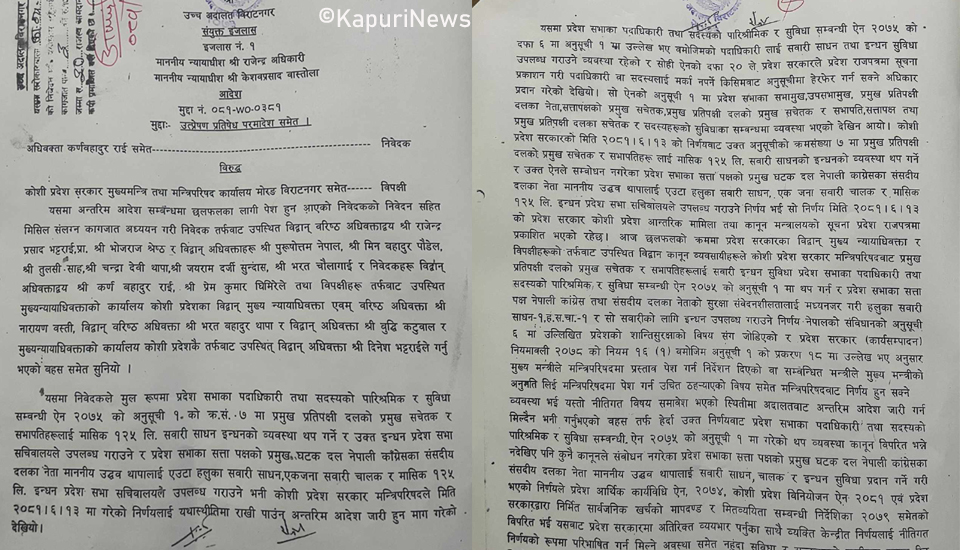 ©KapuriNews
उच्च अदालत विराटनगर
संयुक्त इजलास
इजलास नं. १
माननीय न्यायाधीश श्री राजेन्द्र अधिकारी
माननीय न्यायाधीश श्री केशवप्रसाद वास्तोला
आदेश
मुद्दा नं. ०८१-WO-०३८१
मुद्दा:- उत्प्रेषण प्रतिषेध परमादेश समेत ।
अधिवक्ता कर्णवहादुर राई समेत------------------------------------ निवेदक
विरुद्ध
कोशी प्रदेश सरकार मुख्यमन्त्रि तथा मन्त्रिपरिषद कार्यालय मोरङ विराटनगर समेत------ विपक्षी
यसमा अन्तरिम आदेश सम्बन्धमा छलफलका लागी पेश हुन आएको निवेदकको निवेदन सहित
मिसिल संलग्न कागजात अध्ययन गरी निवेदक तर्फवाट उपस्थित विद्वान् वरिष्ठ अधिवक्ताद्वय श्री राजेन्द्र
प्रसाद भट्टराई,प्रा. श्री भोजराज श्रेष्ठ र विद्वान् अधिवक्ताहरू श्री पुरूषोत्तम नेपाल, श्री मिन वहादुर पौडेल,
श्री तुलसी साह,श्री चन्द्रा देवी थापा,श्री जयराम दर्जी सुन्दास, श्री भरत चौलागाई र निवेदकहरू विद्वान्
अधिवक्ताद्वय श्री कर्ण वहादुर राई, श्री प्रेम कुमार घिमिरेले तथा विपक्षीहरू तर्फवाट उपस्थित
मुख्यन्यायाधिवक्ताको कार्यालय कोशी प्रदेशका विद्वान् मुख्य न्यायाधिवक्ता एवम् वरिष्ठ अधिवक्ता श्री
नारायण वस्ती, विद्वान् वरिष्ठ अधिवक्ता श्री भरत वहादुर थापा र विद्वान् अधिवक्ता श्री वुद्धि कटुवाल र
मुख्यन्यायाधिवक्ताको कार्यालय कोशी प्रदेशकै तर्फवाट उपस्थित् विद्वान् अधिवक्ता श्री दिनेश भट्टराईले गर्नु
भएको बहस समेत सुनियो ।
यसमा निवेदकले मुल रूपमा प्रदेश सभाका पदाधिकारी तथा सदस्यको पारिश्रमिक र सुविधा
सम्वन्धी ऐन २०७५ को अनुसूची १ को क्र.सं. ७ मा प्रमुख प्रतिपक्षी दलको प्रमुख सचेतक र
सभापतिहरूलाई मासिक १२५ लि. सवारी साधन इन्धनको व्यवस्था थप गर्ने र उक्त इन्धन प्रदेश सभा
सचिवालयले उपलव्ध गराउने र प्रदेश सभाका सत्ता पक्षको प्रमुख घटक दल नेपाली कांग्रेसका संसदीय
दलका नेता माननीय उद्धव थापालाई एउटा हलुका सवारी साधन,एकजना सवारी चालक र मासिक १२५
लि. इन्धन प्रदेश सभा सचिवालयले उपलव्ध गराउने भनी कोशी प्रदेश सरकार मन्त्रिपरिषदले मिति
२०८१।६।१३ मा गरेको निर्णयलाई यथास्थीतिमा राखी पाउँन अन्तरिम आदेश जारी हुन माग गरेको
देखियो।
यसमा प्रदेश सभाका पदाधिकारी तथा सदस्यको पारिश्रमिक र सुविधा सम्वन्धी ऐन २०७५ को
दफा ६ मा अनुसूची १ मा उल्लेख भए वमोजिमको पदाधिकारी लाई सवारी साधन तथा इन्धन सुविधा
उपलव्ध गराउने व्यवस्था रहेको र सोही ऐनको दफा २० ले प्रदेश सरकारले प्रदेश राजपत्रमा सूचना
प्रकाशन गरी पदाधिकारी वा सदस्यलाई मर्का नपर्ने किसिमवाट अनुसूचीमा हेरफेर गर्न सक्ने अधिकार
प्रदान गरेको देखियो। सो ऐनको अनुसूची १ मा प्रदेश सभाका सभामुख,उपसभामुख, प्रमुख प्रतिपक्षी
दलका नेता,सत्तापक्षको प्रमुख सचेतक,प्रमुख प्रतिपक्षी दलको प्रमुख सचेतक र सभापति,सत्तापक्ष तथा
प्रमुख प्रतिपक्षी दलका सचेतक र सदस्यहरूको सुविधाका सम्वन्धमा व्यवस्था भएको देखिन आयो। कोशी
प्रदेश सरकारको मिति २०८१।६।१३ को निर्णयवाट उक्त अनुसूचीको क्रमसंख्या ७ मा प्रमुख प्रतिपक्षी
दलको प्रमुख सचेतक र सभापतिहरू लाई मासिक १२५ लि. सवारी साधनको इन्धनको व्यवस्था थप गर्ने
र उक्त ऐनले सम्वोधन नगरेका प्रदेश सभाका सत्ता पक्षको प्रमुख घटक दल नेपाली कांग्रेसका संसदीय
दलका नेता माननीय उद्धव थापालाई एउटा हलुका सवारी साधन, एक जना सवारी चालक र मासिक
१२५ लि. इन्धन प्रदेश सभा सचिवालयले उपलव्ध गराउने निर्णय भई सो निर्णय मिति २०८१।६।१३
को प्रदेश सरकार कोशी प्रदेश आन्तरिक मामिला तथा कानून मन्त्रालयको सूचना प्रदेश राजपत्रमा
प्रकाशित भएको रहेछ। आज छलफलको क्रममा प्रदेश सरकारका विद्वान् मुख्य न्यायाधिवक्ता र
विपक्षीहरूको तर्फवाट उपस्थित विद्वान कानून व्यवसायीहरूले कोशी प्रदेश सरकार मन्त्रिपरिषदवाट प्रमुख
प्रतिपक्षी दलको प्रमुख सचेतक र सभापतिहरूलाई सवारी इन्धन सुविधा प्रदेश सभाका पदाधिकारी तथा
सदस्यको पारिश्रमिक र सुविधा सम्वन्धी ऐन २०७५ को अनुसूची १ मा थप गर्न र प्रदेश सभाका सत्ता
पक्ष नेपाली कांग्रेस तथा संसदीय दलका नेताको सुरक्षा संवेदनशीलतालाई मध्यनजर गरी हलुका सवारी
साधन-१,ह.स.चा.-१ र सो सवारीको लागि इन्धन उपलव्ध गराउने निर्णय नेपालको संविधानको अनुसूची
६ मा उल्लिखित प्रदेशको शान्तिसुरक्षाको विषय संग जोडिएको र प्रदेश सरकार (कार्यसम्पादन)
नियमावली २०७८ को नियम १६ (१) वमोजिम अनुसूची १ को प्रकरण १८ मा उल्लेख भए अनुसार
मुख्य मन्त्रीले मन्त्रिपरिषदमा प्रस्ताव पेश गर्न निर्देशन दिएको वा सम्वन्धित मन्त्रीले मुख्य मन्त्रीको
अनुमति लिई मन्त्रिपरिषदमा पेश गर्न उचित ठहर्‍याएको विषय समेत मन्त्रिपरिषदवाट निर्णय हुन सक्ने
व्यवस्था भई यस्तो नीतिगत विषय समावेश भएको स्थितीमा अदालतवाट अन्तरिम आदेश जारी गर्न
मिल्दैन भनी गर्नुभएको वहस तर्फ हेर्दा उक्त निर्णयवाट प्रदेश सभाका पदाधिकारी तथा सदस्यको
पारिश्रमिक र सुविधा सम्वन्धी, ऐन २०७५ को अनुसूची १ मा गरेको थप व्यवस्था कानून विपरित भन्ने
नदेखिए पनि कुनै कानूनले संबोधन नगरेका प्रदेश सभाका सत्ता पक्षको प्रमुख घटक दल नेपाली कांग्रेसका
संसदीय दलका नेता माननीय उद्धव थापालाई सवारी साधन, चालक र इन्धन सुविधा प्रदान गर्ने गरी
भएको निर्णयले प्रदेश आर्थिक कार्यविधि ऐन, २०७४, कोशी प्रदेश विनियोजन ऐन २०८१ एवं प्रदेश
सरकारद्वारा निर्मित सार्वजनिक खर्चको मापदण्ड र मितव्ययिता सम्वन्धी निर्देशिका २०७९ समेतको
विपरित भई यसवाट प्रदेश सरकारमा अतिरिक्त व्ययभार पर्नुका साथै व्यक्ति केन्द्रीत निर्णयलाई नीतिगत
निर्णयको रूपमा परिभाषित गर्न मिल्ने अवस्था समेत नहुंदा